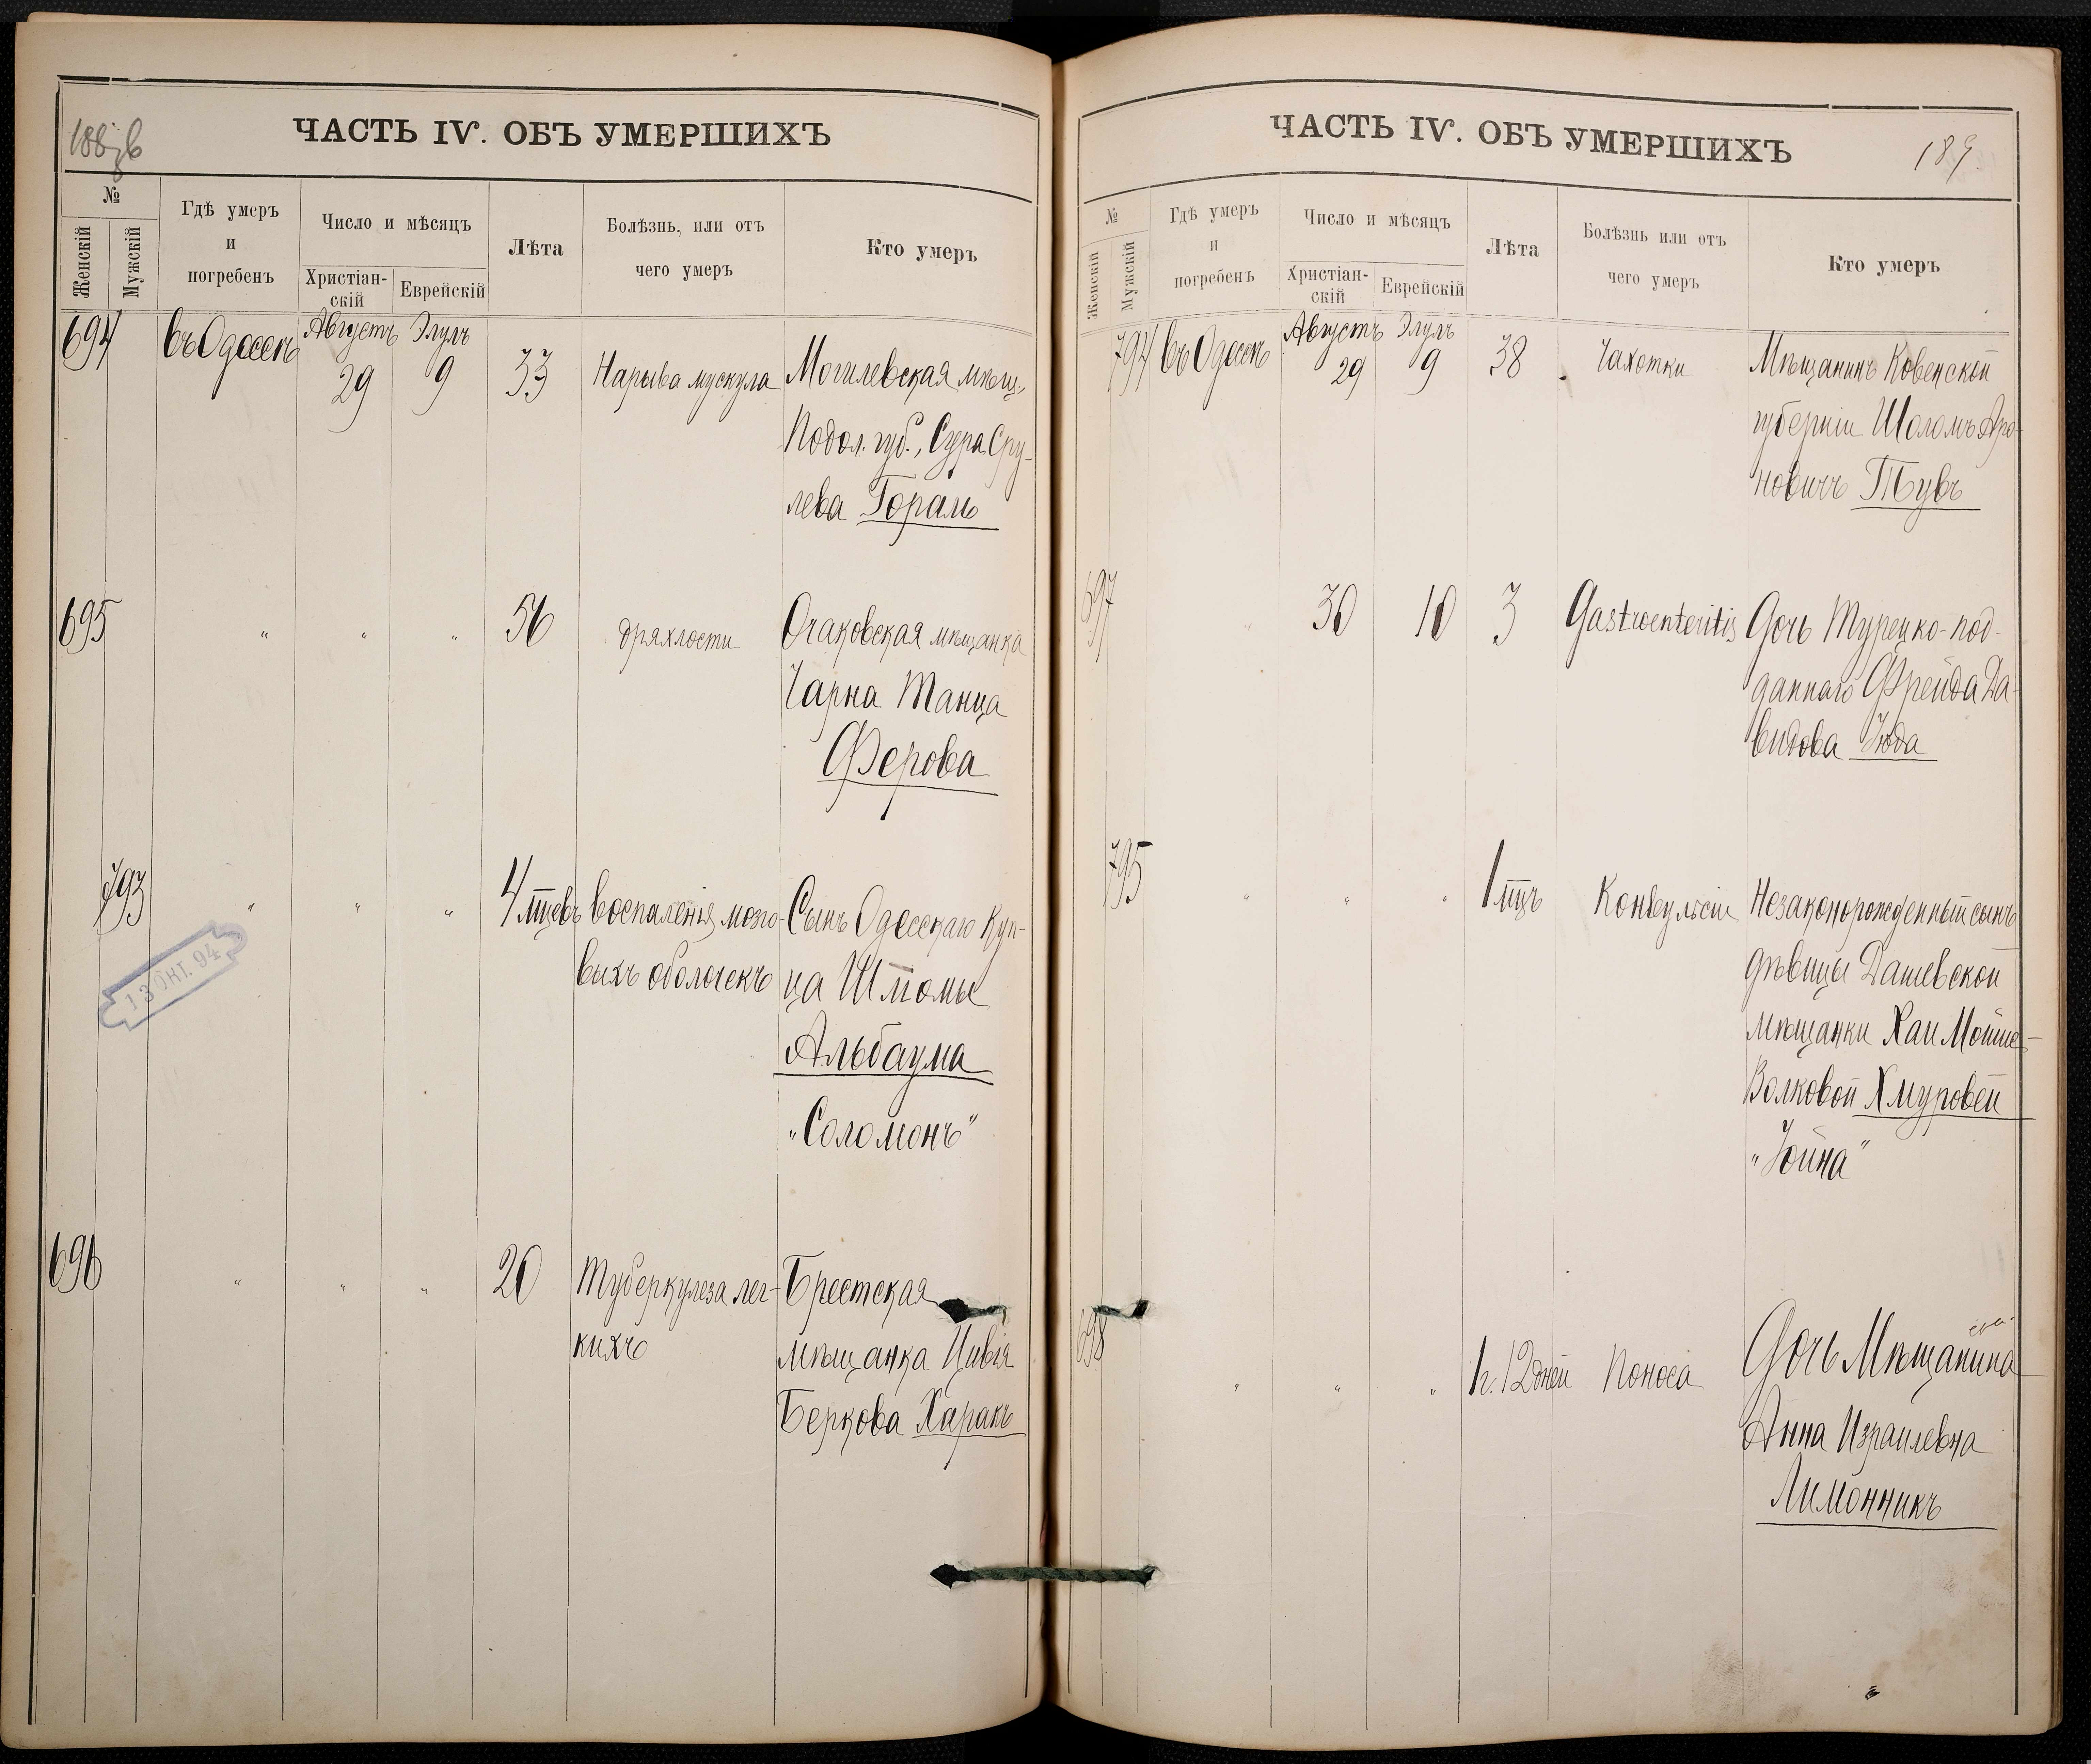 188 об
ЧАСТЬ IV. ОБЪ УМЕРШИХЪ
№
Женскій
Мужскій
Гдѣ умеръ
и
погребенъ
Число и мѣсяцъ
Христіан-
скій
Еврейскій
Лѣта
Болѣзнь, или отъ
чего умеръ
Кто умеръ
694 въ Одессѣ Августъ 29 Элулъ 9 33 Нарыва мускула Могилевская мѣщ.
Подол. губ., Сура Сру-
лева Гораль
695 " " " 56 дряхлости Очаковская мѣщанка
Чарна Танца
Ферова
793 " " " 4 мцевъ воспаленія мозго- Сынъ Одесскаго Куп-
выхъ оболочекъ ца Шломы
Альбаума
"Соломонъ"
13 ОКТ. 94
696 " " " 20 Туберкулеза лег- Брестская
кихъ мѣщанка Цивья
Беркова Харакъ
ЧАСТЬ IV. ОБЪ УМЕРШИХЪ
189.
№
Женскій
Мужскій
Гдѣ умеръ
и
погребенъ
Число и мѣсяцъ
Христіан-
скій
Еврейскій
Лѣта
Болѣзнь или отъ
чего умеръ
Кто умеръ
794 въ Одессѣ Августъ 29 Элулъ 9 38 Чахотки Мѣщанинъ Ковенской
губерніи Шоломъ Аро-
новичъ Тувъ
697 " 30 10 3 Gastroenteritis Дочь Турецко-под-
даннаго Фрейда Да-
видова Іюда
795 " " " 1 мцъ Конвульсіи Незаконорожденный сынъ
дѣвицы Дашевской
мѣщанки Хаи Мойше-
Волковой Хмуровей
"Іойна"
698 " " " 1 г. 12 дней Поноса Дочь Мѣщанина
Анна Израилевна
Лимонникъ